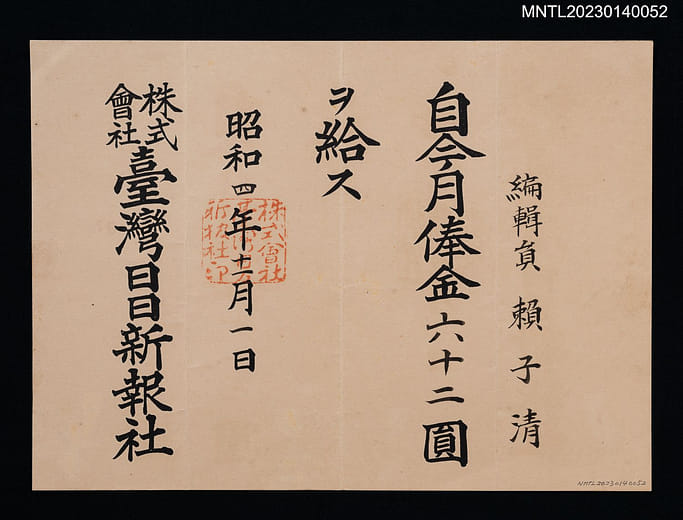 MNTL20230140052
編輯員 賴子清
自今月俸金六十二圓
ヲ給ス
昭和四年十二月一日
株式會社臺灣日日新報社
NMTL20230140052